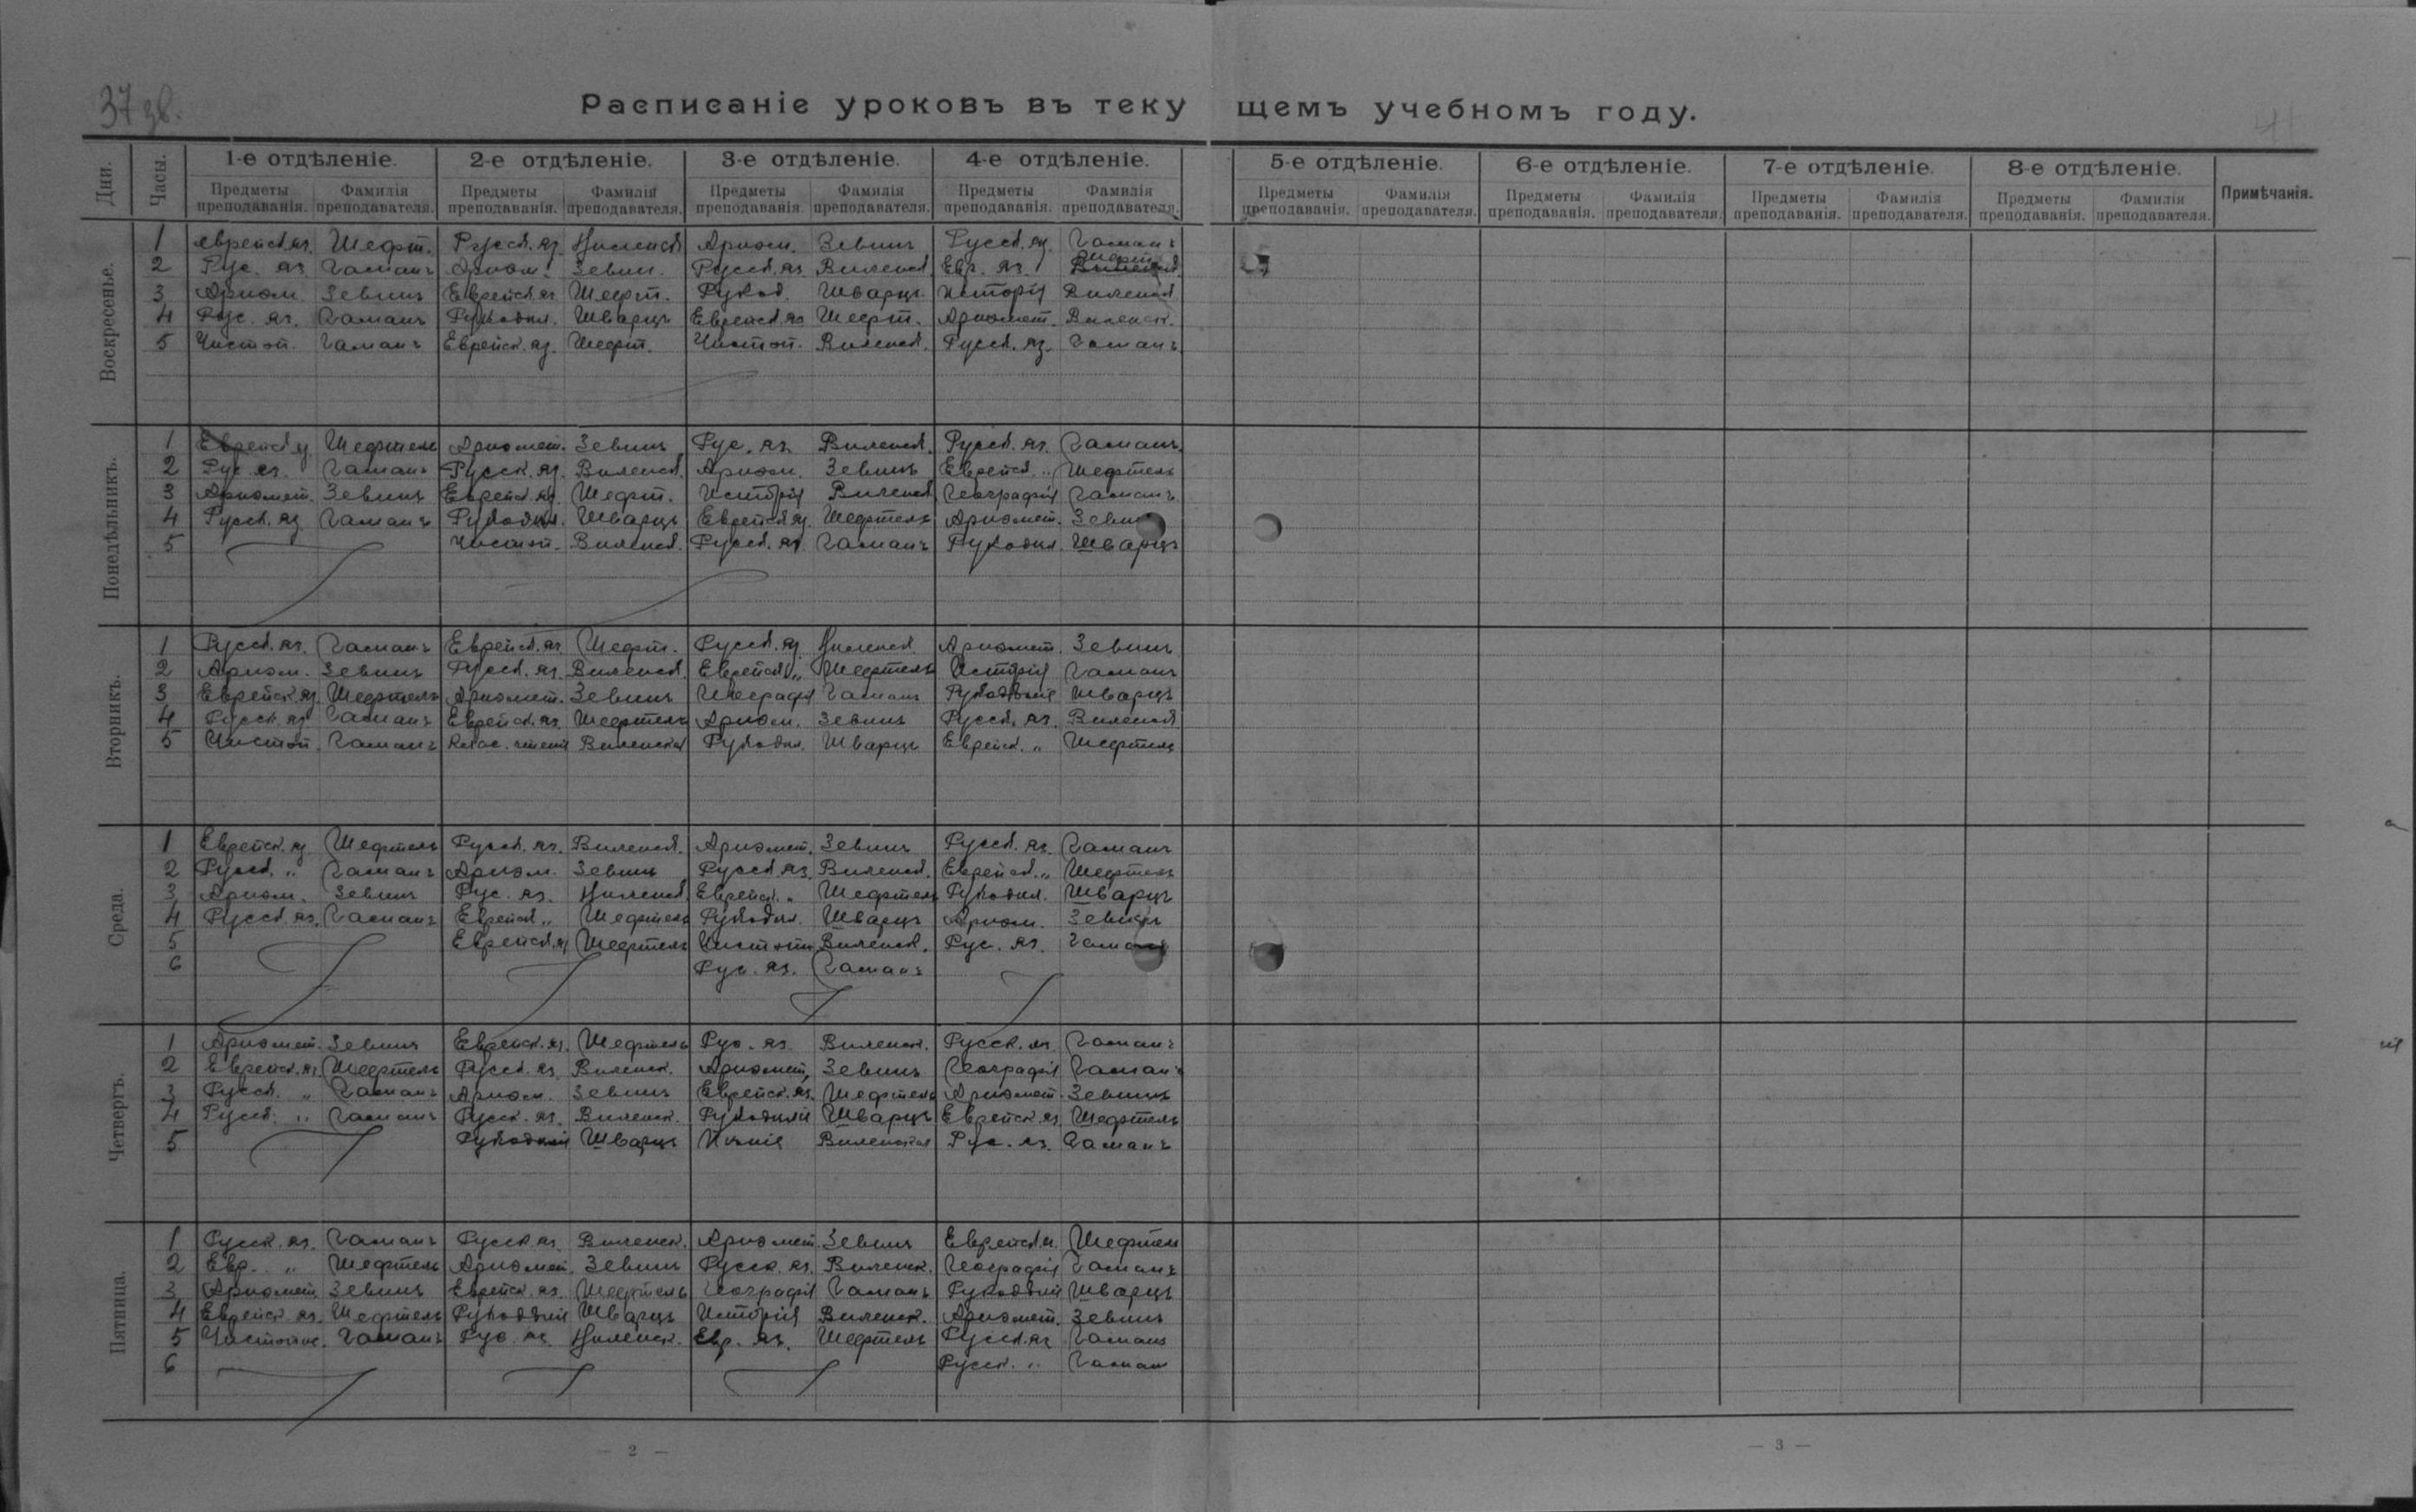 37 зв.
Расписаніе уроковъ въ теку щемъ учебномъ году.
41
Дни. Часы. 1-е отдѣленіе. 2-е отдѣленіе. 3-е отдѣленіе. 4-е отдѣленіе. 5-е отдѣленіе. 6-е отдѣленіе. 7-е отдѣленіе. 8-е отдѣленіе. Примѣчанія.
Предметы преподаванія. Фамилія преподавателя. Предметы преподаванія. Фамилія преподавателя. Предметы преподаванія. Фамилія преподавателя. Предметы преподаванія. Фамилія преподавателя. Предметы преподаванія. Фамилія преподавателя. Предметы преподаванія. Фамилія преподавателя. Предметы преподаванія. Фамилія преподавателя. Предметы преподаванія. Фамилія преподавателя.
Воскресенье.
1 Еврейск. яз. Шефт. Русск. яз. Виленск. Ариѳм. Зевинъ Русск. яз. Гаманъ
2 Рус. яз. Гаманъ Ариѳм. Зевин. Русск. яз. Виленск. Евр. яз. Шефт.
3 Ариѳм. Зевинъ Еврейск. яз. Шефт. Рукод. Шварцъ Исторія Виленск.
4 Рус. яз. Гаманъ Рукодѣл. Шварцъ Еврейск. яз. Шефт. Ариѳмет. Виленск.
5 Чистоп. Гаманъ Еврейск. яз. Шефт. Чистоп. Виленск. Русск. яз. Гаманъ
Понедѣльникъ.
1 Еврейск. яз. Шефтель Ариѳмет. Зевинъ Рус. яз. Виленск. Русск. яз. Гаманъ
2 Рус. яз. Гаманъ Русск. яз. Виленск. Ариѳм. Зевинъ Еврейск. „ Шефтель
3 Ариѳмет. Зевинъ Еврейск. яз. Шефт. Исторія Виленск. Географія Гаманъ
4 Русск. яз. Гаманъ Рукодѣл. Шварцъ Еврейск. яз. Шефтель Ариѳмет. Зевинъ
5 Чистоп. Виленск. Русск. яз. Гаманъ Рукодѣл. Шварцъ
Вторникъ.
1 Русск. яз. Гаманъ Еврейск. яз. Шефт. Русск. яз. Виленск. Ариѳмет. Зевинъ
2 Ариѳм. Зевинъ Русск. яз. Виленск. Еврейск. „ Шефтель Исторія Гаманъ
3 Еврейск. яз. Шефтель Ариѳмет. Зевинъ Географія Гаманъ Рукодѣліе Шварцъ
4 Русск. яз. Гаманъ Еврейск. яз. Шефтель Ариѳм. Зевинъ Русск. яз. Виленск.
5 Чистоп. Гаманъ Клас. чтеніе Виленская Рукодѣл. Шварцъ Еврейск. „ Шефтель
Среда.
1 Еврейск. яз. Шефтель Русск. яз. Виленск. Ариѳмет. Зевинъ Русск. яз. Гаманъ
2 Русск. „ Гаманъ Ариѳм. Зевинъ Русск. яз. Виленск. Еврейск. „ Шефтель
3 Ариѳм. Зевинъ Рус. яз. Виленск. Еврейск. „ Шефтель Рукодѣл. Шварцъ
4 Русск. яз. Гаманъ Еврейск. „ Шефтель Рукодѣл. Шварцъ Ариѳм. Зевинъ
5 Еврейск. яз. Шефтель Чистоп. Виленск. Рус. яз. Гаманъ
6 Рус. яз. Гаманъ
Четвергъ.
1 Ариѳмет. Зевинъ Еврейск. яз. Шефтель Рус. яз. Виленск. Русск. яз. Гаманъ
2 Еврейск. яз. Шефтель Русск. яз. Виленск. Ариѳмет. Зевинъ Географія Гаманъ
3 Русск. „ Гаманъ Ариѳм. Зевинъ Еврейск. яз. Шефтель Ариѳмет. Зевинъ
4 Русск. „ Гаманъ Русск. яз. Виленск. Рукодѣліе Шварцъ Еврейск. яз. Шефтель
5 Рукодѣліе Шварцъ Пѣніе Виленская Рус. яз. Гаманъ
Пятница.
1 Русск. яз. Гаманъ Русск. яз. Виленск. Ариѳмет. Зевинъ Еврейск. яз. Шефтель
2 Евр. „ Шефтель Ариѳмет. Зевинъ Русск. яз. Виленск. Географія Гаманъ
3 Ариѳмет. Зевинъ Еврейск. яз. Шефтель Географія Гаманъ Рукодѣліе Шварцъ
4 Еврейск. яз. Шефтель Рукодѣліе Шварцъ Исторія Виленск. Ариѳмет. Зевинъ
5 Чистопис. Гаманъ Рус. яз. Виленск. Евр. яз. Шефтель Русск. яз. Гаманъ
6 Русск. „ Гаман
— 2 —
— 3 —